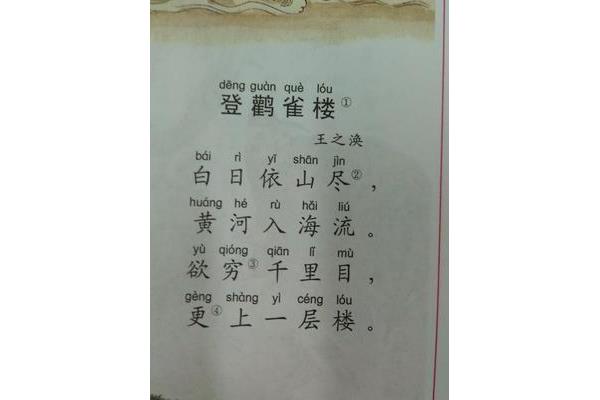 dēng guàn què lóu
登鹳雀楼①
王之涣
bái rì yī shān jìn
白日依山尽②，
huáng hé rù hǎi liú
黄河入海流。
yù qióng qiān lǐ mù
欲穷③千里目，
gèng shàng yì céng lóu
更④上一层楼。